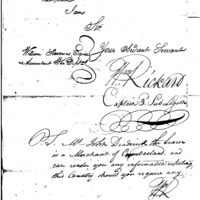 I am
Sir
Your Obedient Servant
William Simmons Esquire
Accountant War Dept
Wm Rickard
Captain 3. Sub Legion
P.S. Mr John Diederick the bearer
is a Merchant of Cumberland, and
can render you any information respecting
this Country should you require any.
WR